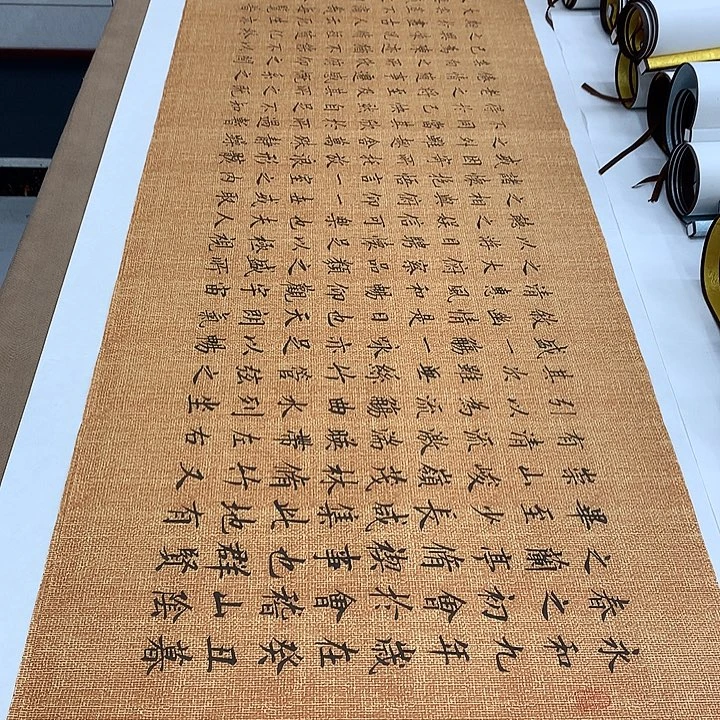 永和九年歲在癸丑暮
春之初會於會稽山陰
之蘭亭脩禊事也群賢
畢至少長咸集此地有
崇山峻嶺茂林脩竹又
有清流激湍映帶左右
引以為流觴曲水列坐
其次雖無絲竹管弦之
盛一觴一詠亦足以暢
敘幽情是日也天朗氣
清惠風和暢仰觀宇宙
之大俯察品類之盛所
以游目騁懷足以極視
聽之娛信可樂也夫人
之相與俯仰一世或取
諸懷抱悟言一室之內
或因寄所託放浪形骸
之外雖趣舍萬殊靜躁
不同當其欣於所遇暫
得於己快然自足不知
老之將至及其所之既
倦情隨事遷感慨係之